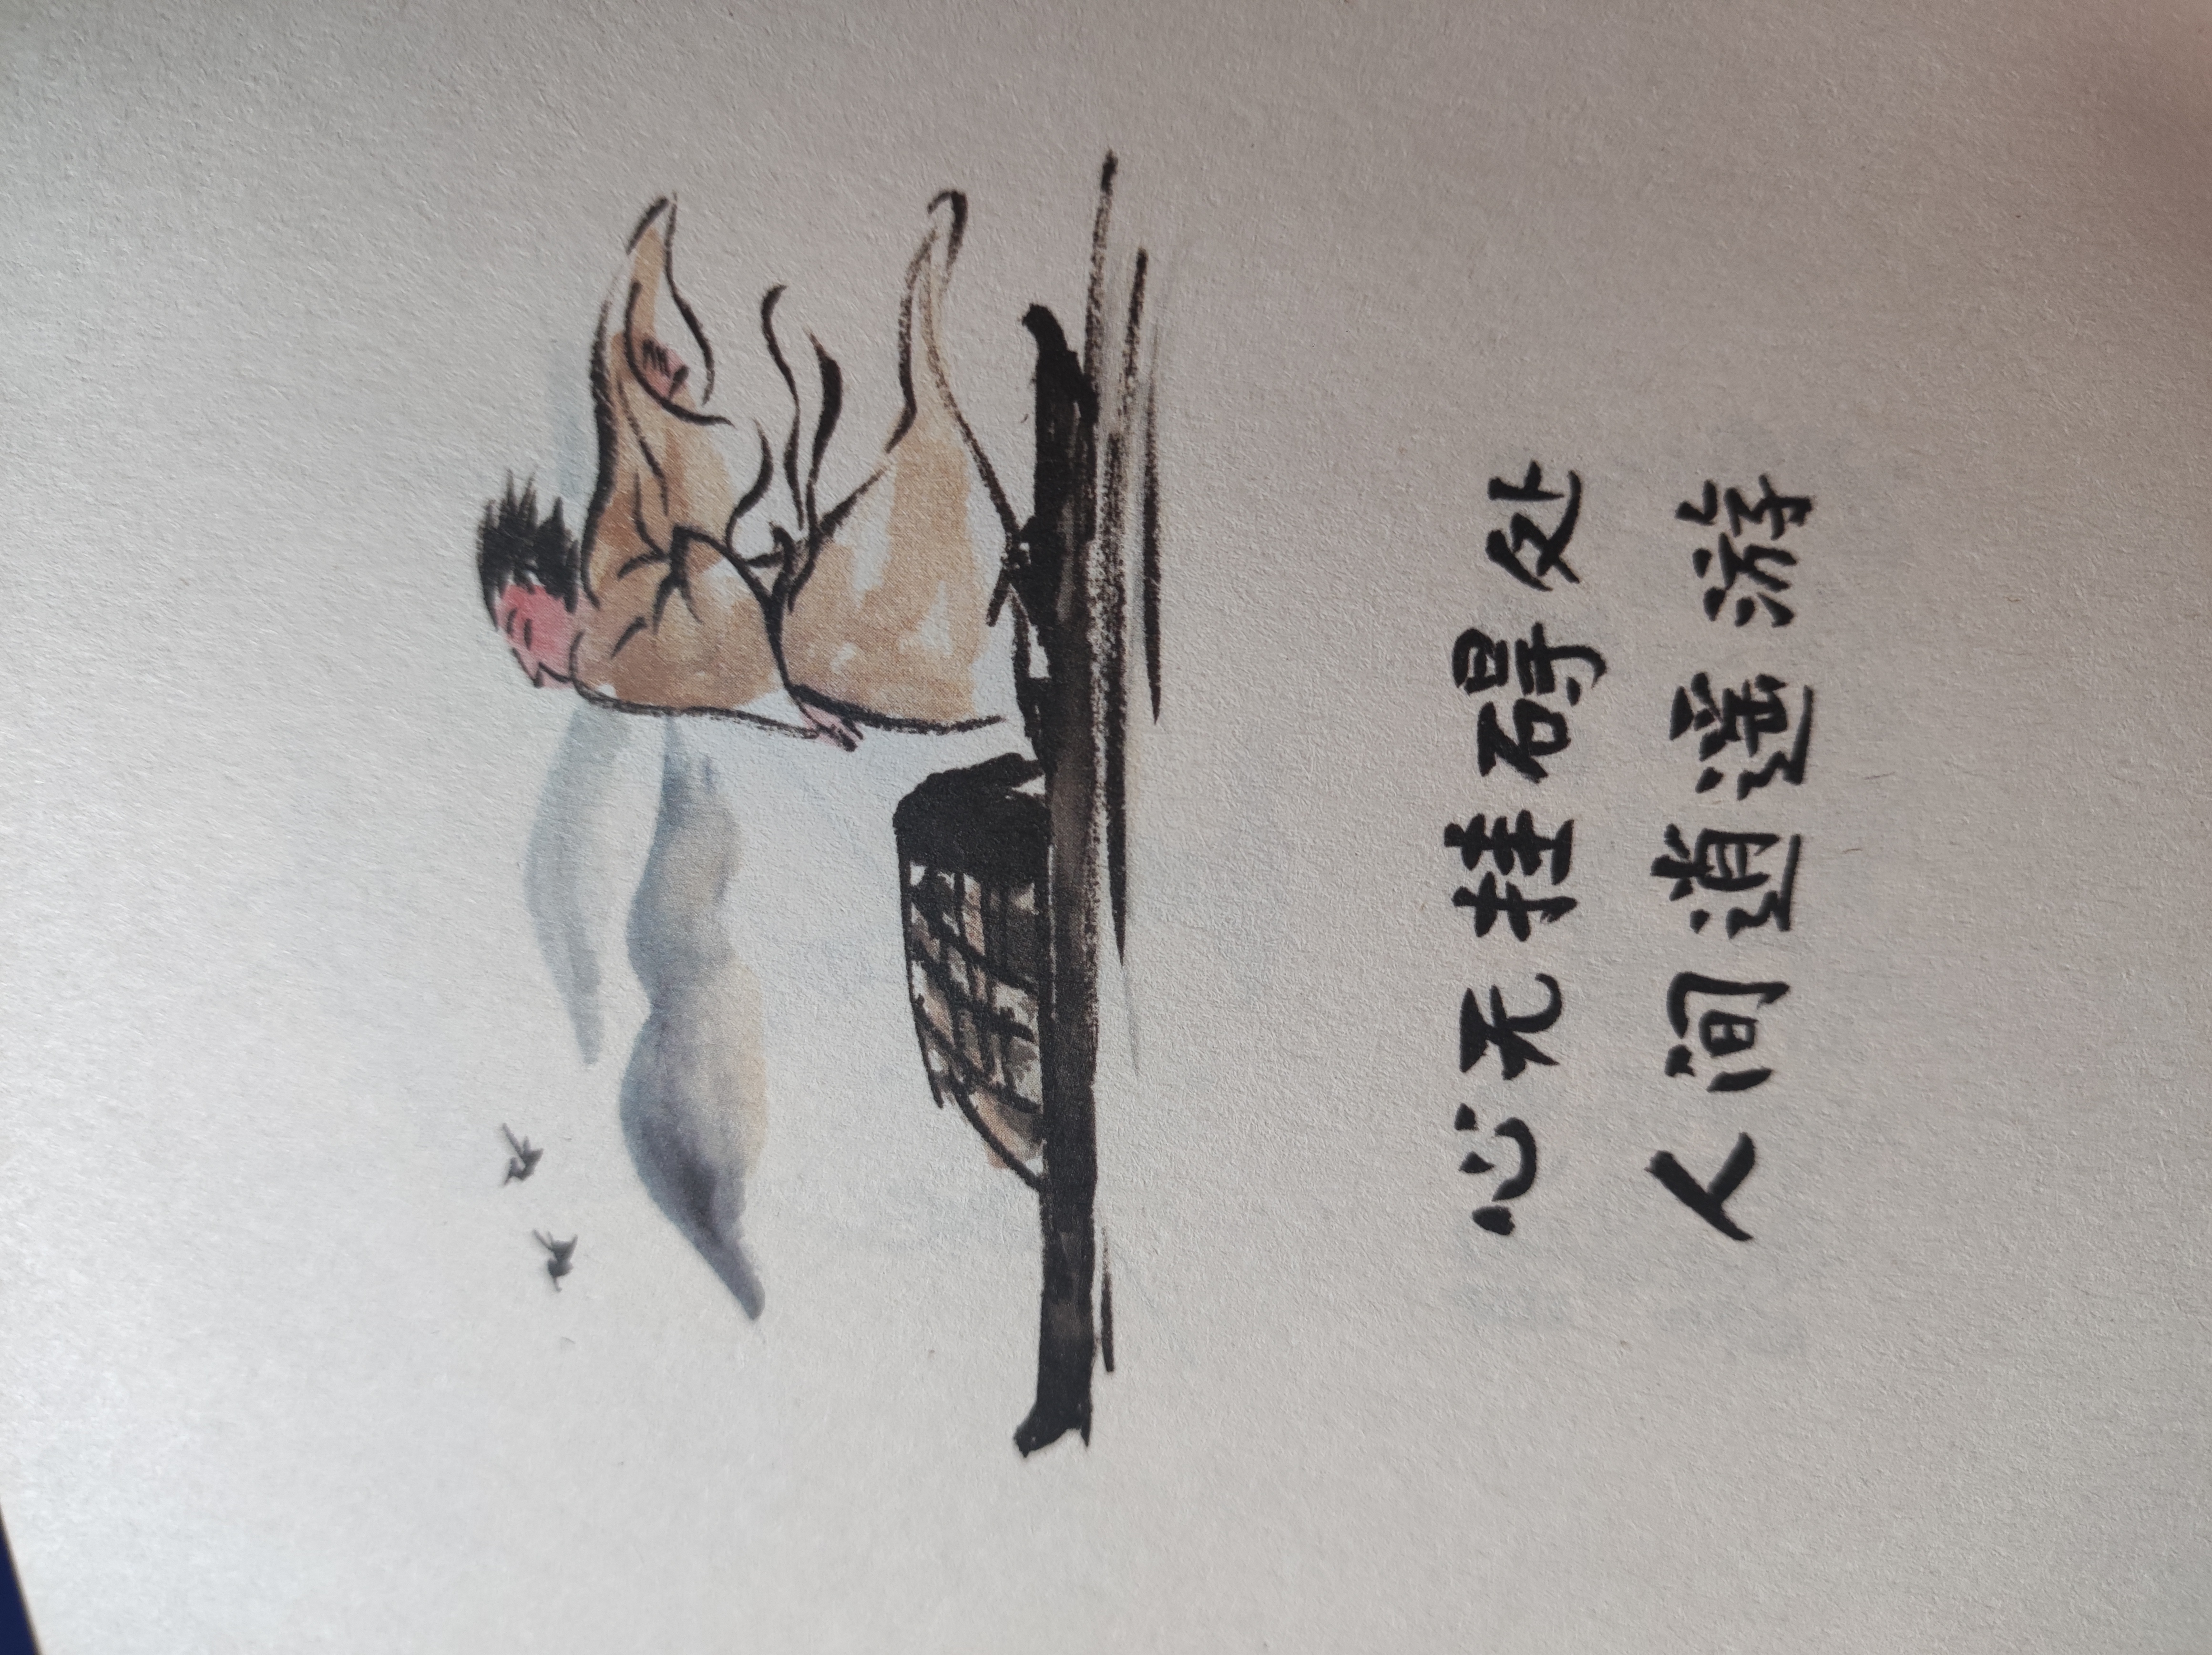 心无挂碍处
人间逍遥游